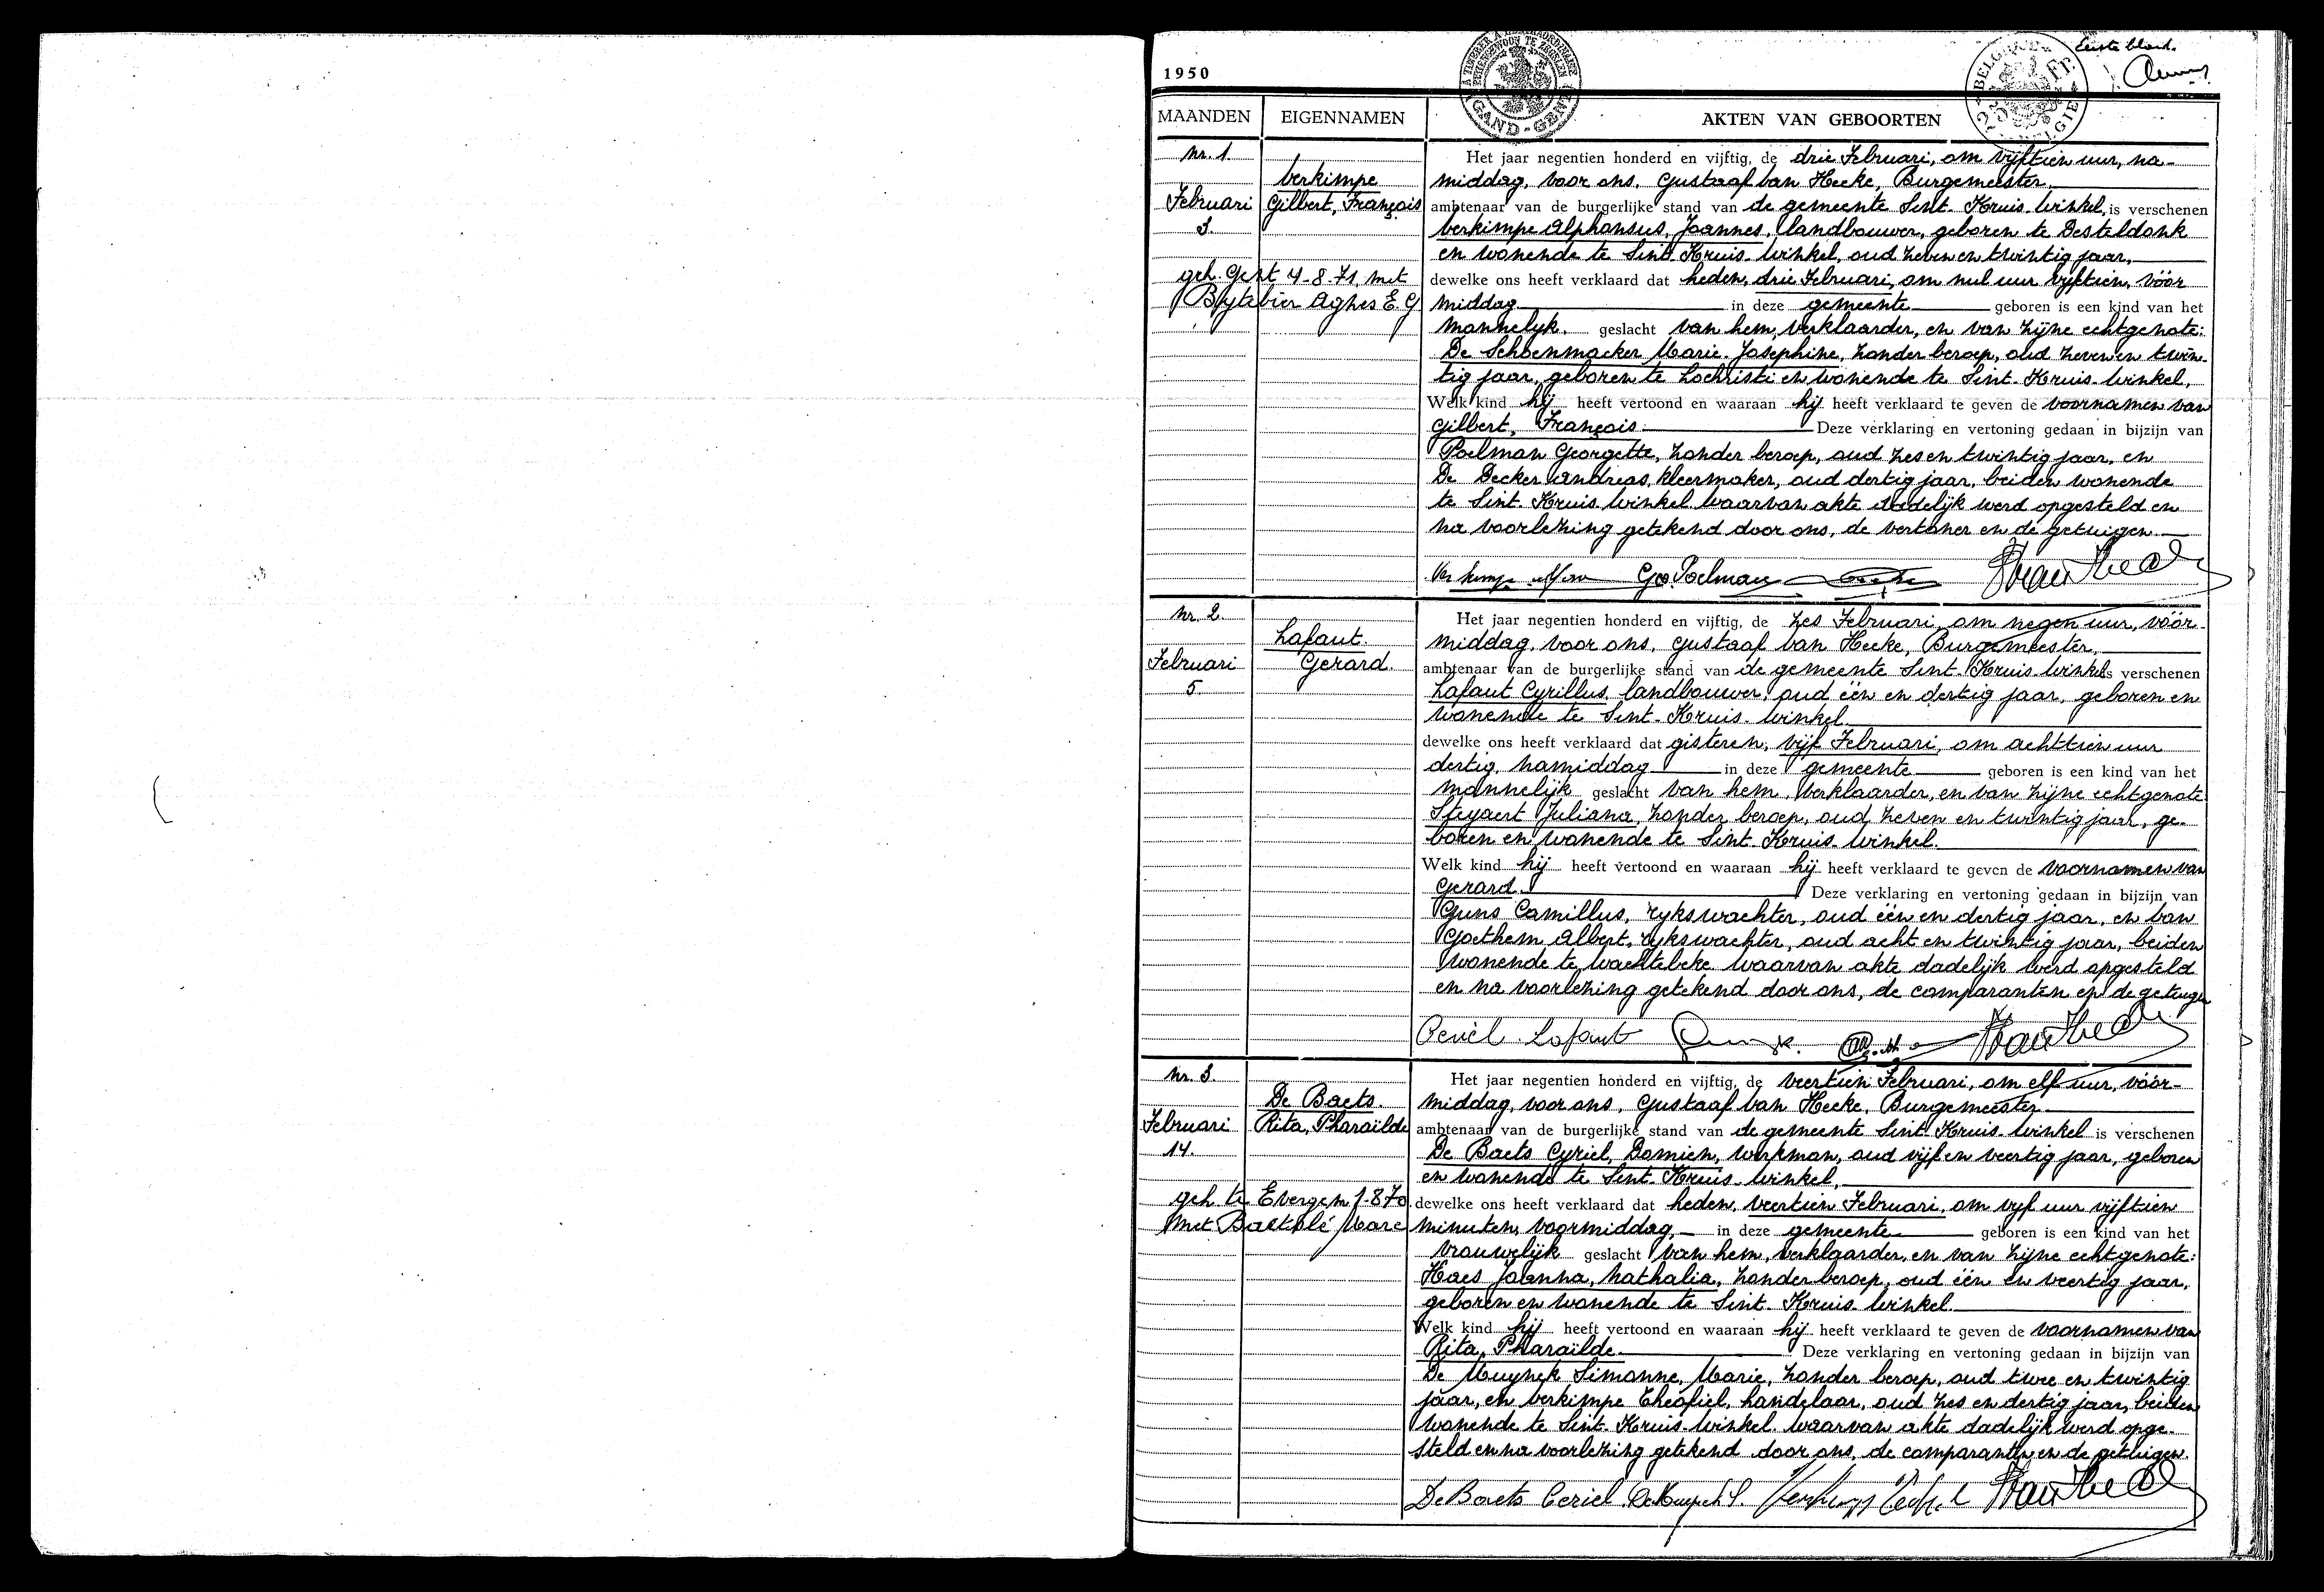 Eerste blad.
1950
A TIMBRER A L'EXTRAORDINAIRE
BUITENGEWOON TE ZEGELEN
GAND - GENT
BELGIQUE
Fr.
BELGIE
MAANDEN EIGENNAMEN AKTEN VAN GEBOORTEN
Nr. 1.
Verkimpe
Februari Gilbert, François
3.
geh. Gent 4-8-71 met
Bytebier Agnes E. G
Het jaar negentien honderd en vijftig, de drie Februari, om vijftien uur, na-
middag, voor ons, Gustaaf Van Hecke, Burgemeester,
ambtenaar van de burgerlijke stand van de gemeente Sint-Kruis-Winkel, is verschenen
Verkimpe Alphonsus, Joannes, landbouwer, geboren te Desteldonk
en wonende te Sint-Kruis-Winkel, oud zeven en twintig jaar,
dewelke ons heeft verklaard dat heden, drie Februari, om nul uur vijftien, vóór
middag in deze gemeente geboren is een kind van het
mannelijk geslacht van hem, verklaarder, en van zijne echtgenote:
De Schoenmacker Marie-Josephine, zonder beroep, oud zeven en twin-
tig jaar, geboren te Lochristi en wonende te Sint-Kruis-Winkel.
Welk kind hij heeft vertoond en waaraan hij heeft verklaard te geven de voornamen van
Gilbert, François Deze verklaring en vertoning gedaan in bijzijn van
Poelman Georgette, zonder beroep, oud zes en twintig jaar, en
De Decker Andreas, kleermaker, oud dertig jaar, beiden wonende
te Sint-Kruis-Winkel. Waarvan akte dadelijk werd opgesteld en
na voorlezing getekend door ons, de vertoner en de getuigen.
Geo. Poelman
Nr. 2.
Lafaut.
Februari Gerard.
5.
Het jaar negentien honderd en vijftig, de zes Februari, om negen uur, vóór-
middag, voor ons, Gustaaf Van Hecke, Burgemeester,
ambtenaar van de burgerlijke stand van de gemeente Sint-Kruis-Winkel is verschenen
Lafaut Cyrillus, landbouwer, oud één en dertig jaar, geboren en
wonende te Sint-Kruis-Winkel
dewelke ons heeft verklaard dat gisteren, vijf Februari, om achttien uur
dertig, namiddag in deze gemeente geboren is een kind van het
mannelijk geslacht van hem, verklaarder, en van zijne echtgenote:
Steyaert Juliana, zonder beroep, oud zeven en twintig jaar, ge-
boren en wonende te Sint-Kruis-Winkel.
Welk kind hij heeft vertoond en waaraan hij heeft verklaard te geven de voornamen van
Gerard. Deze verklaring en vertoning gedaan in bijzijn van
Guns Camillus, rijkswachter, oud één en dertig jaar, en Van
Goethem Albert, rijkswachter, oud acht en twintig jaar, beiden
wonende te Wachtebeke. Waarvan akte dadelijk werd opgesteld
en na voorlezing getekend door ons, de comparanten en de getuigen
Ceriel Lafaut
Nr. 3.
De Baets.
Februari Rita, Pharaïlde
14.
geh. te Evergem 7-8-70
met Baetslé Marc
Het jaar negentien honderd en vijftig, de veertien Februari, om elf uur, vóór-
middag, voor ons, Gustaaf Van Hecke, Burgemeester
ambtenaar van de burgerlijke stand van de gemeente Sint-Kruis-Winkel is verschenen
De Baets Cyriel, Damien, werkman, oud vijf en veertig jaar, geboren
en wonende te Sint-Kruis-Winkel,
dewelke ons heeft verklaard dat heden, veertien Februari, om vijf uur vijftien
minuten, voormiddag, in deze gemeente geboren is een kind van het
vrouwelijk geslacht van hem, verklaarder, en van zijne echtgenote:
Haes Joanna, Nathalia, zonder beroep, oud één en veertig jaar,
geboren en wonende te Sint-Kruis-Winkel.
Welk kind hij heeft vertoond en waaraan hij heeft verklaard te geven de voornamen van
Rita, Pharaïlde Deze verklaring en vertoning gedaan in bijzijn van
De Muynck Simonne, Marie, zonder beroep, oud twee en twintig
jaar, en Verkimpe Theofiel, handelaar, oud zes en dertig jaar, beiden
wonende te Sint-Kruis-Winkel. Waarvan akte dadelijk werd opge-
steld en na voorlezing getekend door ons, de comparanten en de getuigen.
De Baets Ceriel De Muynck S.